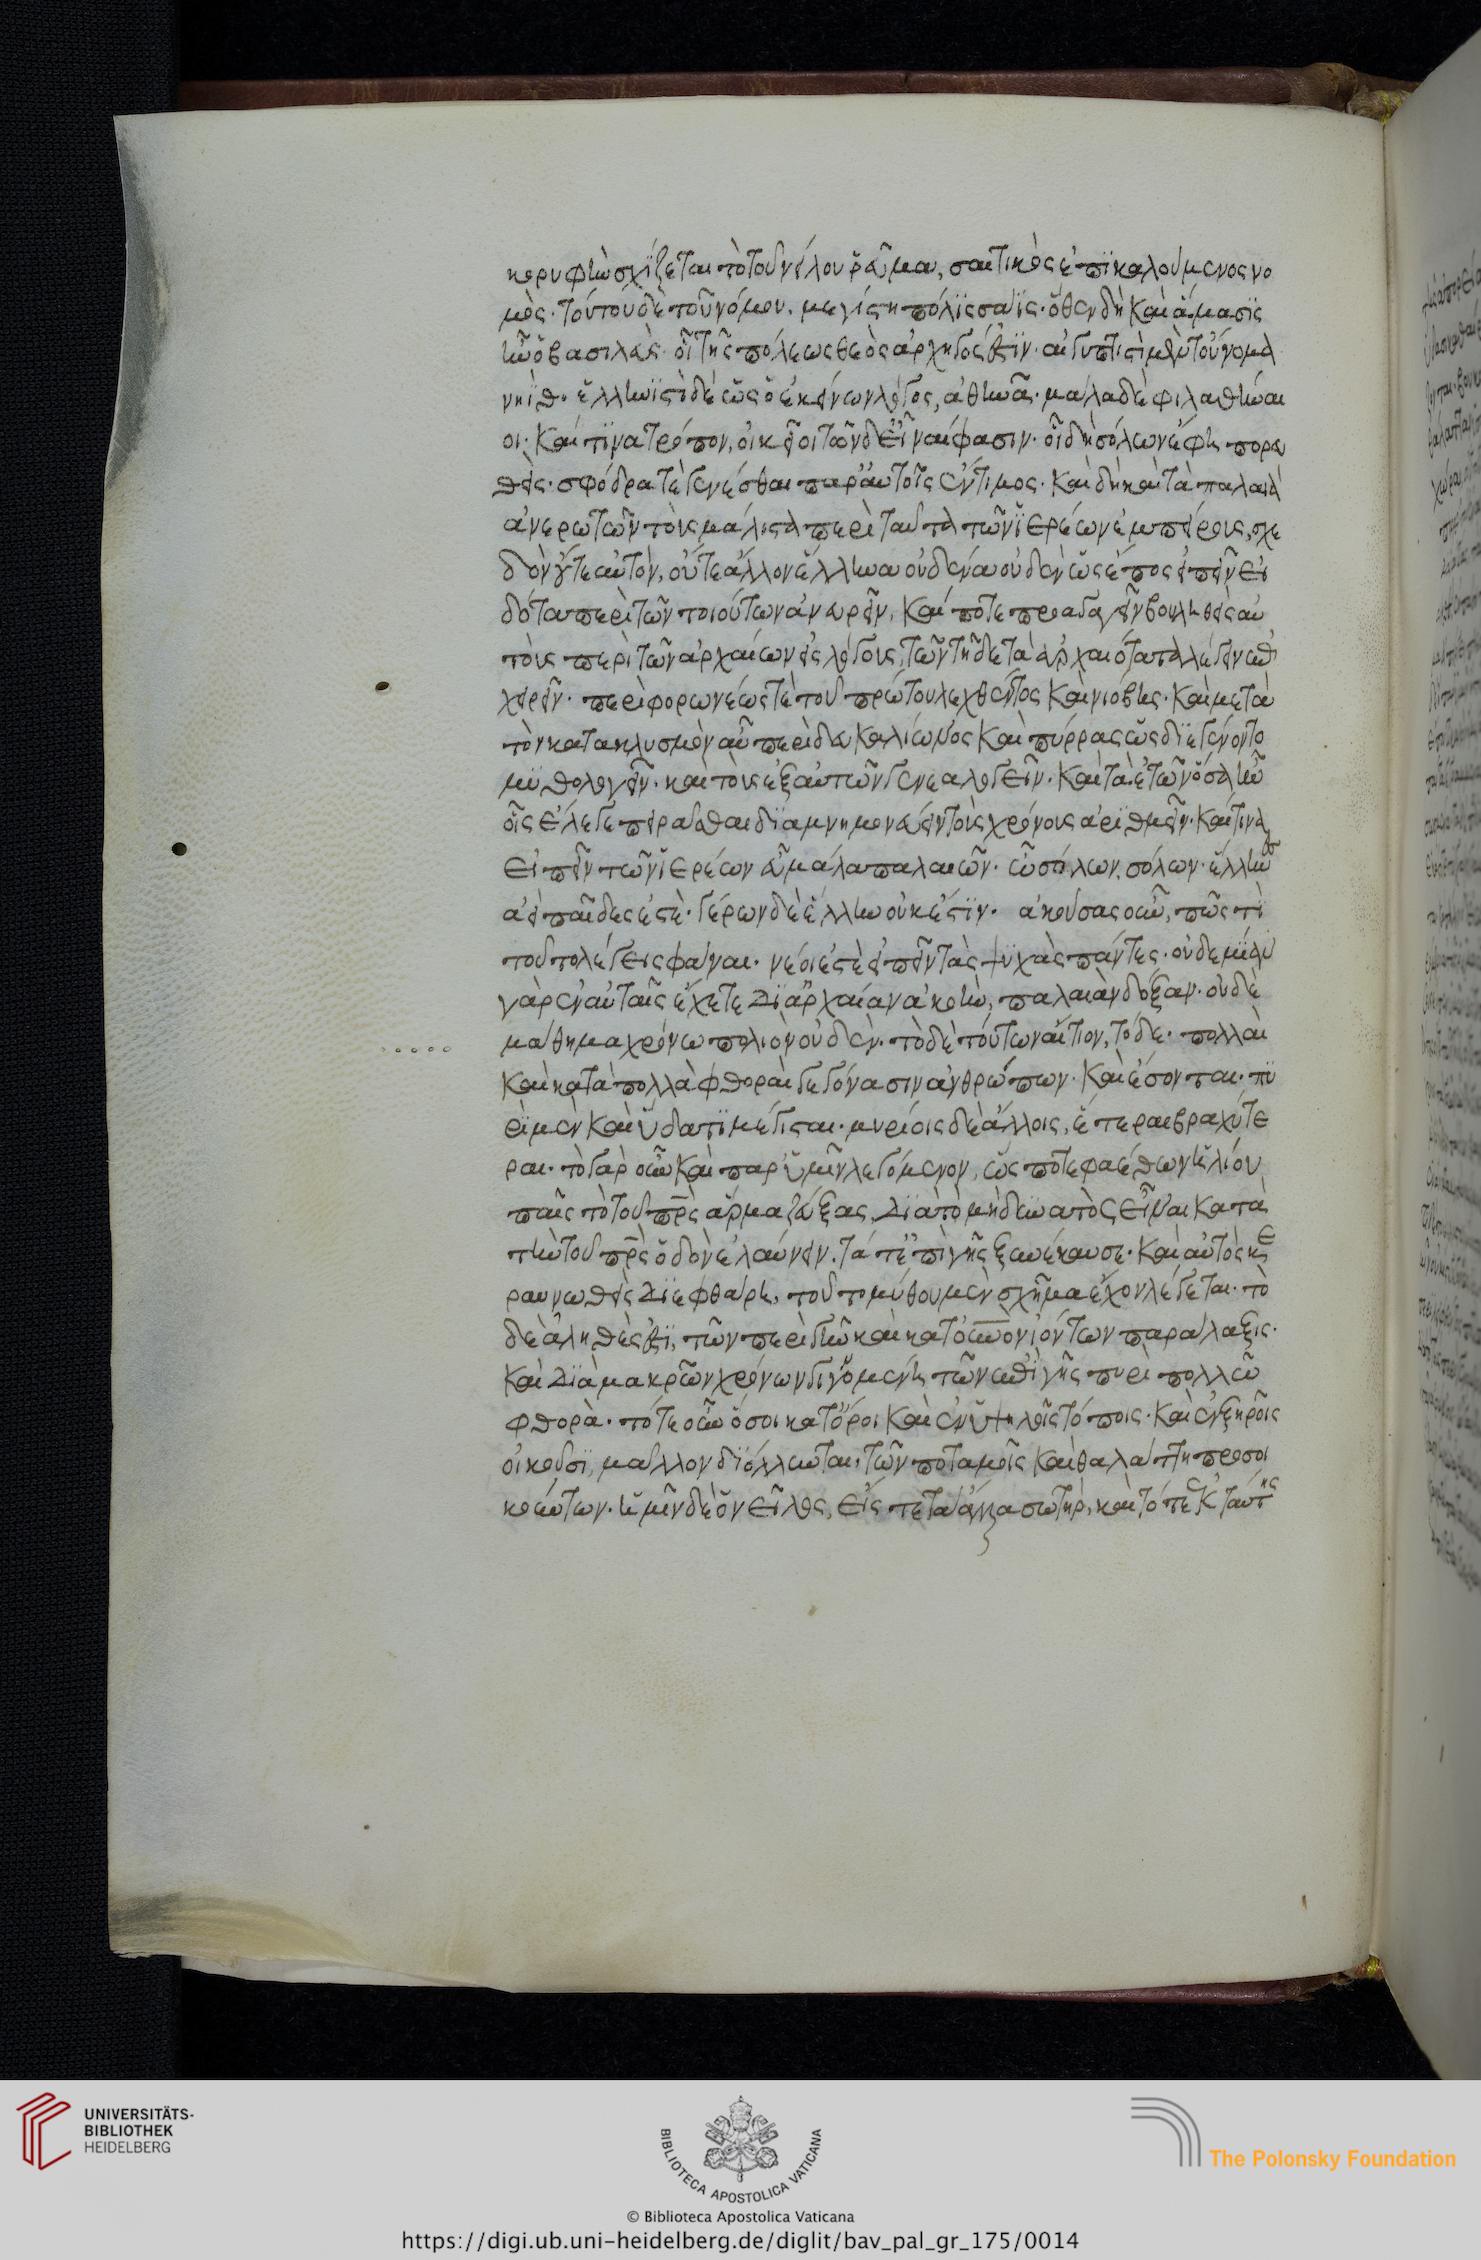 κορυφὴν σχίζεται τὸ τοῦ νείλου ῥεῦμα, σαϊτικὸς ἐπικαλούμενος νο
μὸς· τούτου δὲ τοῦ νόμου, μεγίστη πόλις σάϊς· ὅθεν δὴ καὶ ἄμασις
ἦν ὁ βασιλεὺς· οἳ τῆς πόλεως θεὸς ἀρχηγός ἐστιν· αἰγυπτιστὶ μὲν τοὔνομα
νηῒθ· ἑλληνιστὶ δὲ ὡς ὁ ἐκείνων λόγος, ἀθηνᾶ· μάλα δὲ φιλαθήναι
οι· καί τινα τρόπον, οἰκεῖοι τῶνδ' εἶναί φασιν· οἷ δὴ σόλων ἔφη πορευ
θείς· σφόδρα τὲ γενέσθαι παρ' αὐτοῖς ἔντιμος· καὶ δὴ καὶ τὰ παλαιὰ
ἀνερωτῶν τοὺς μάλιστα περὶ ταῦτα τῶν ἱερέων ἐμπείρους, σχε
δὸν οὔτε αὐτὸν, οὔτε ἄλλον ἕλληνα οὐδένα οὐδὲν ὡς ἔπος εἰπεῖν εἰ
δότα περὶ τῶν τοιούτων ἀνευρεῖν, καί ποτε προαγαγεῖν βουληθεὶς αὐ
τοὺς περὶ τῶν ἀρχαίων εἰς λόγους, τῶν τῆδε τὰ ἀρχαιότατα λέγειν ἐπι
χειρεῖν· περὶ φορωνέως τὲ τοῦ πρώτου λεχθέντος καὶ νιόβης· καὶ μετὰ
τὸν κατακλυσμὸν αὖ περὶ δευκαλίωνος καὶ πύρρας ὡς διεγένοντο
μυθολογεῖν· καὶ τοὺς ἐξ αὐτῶν γενεαλογεῖν· καὶ τὰ ἐτῶν ὅσα ἦν
οἷς ἔλεγε πειρᾶσθαι διαμνημονεύειν τοὺς χρόνους ἀριθμεῖν· καί τινα
εἰπεῖν τῶν ἱερέων εὖ μάλα παλαιῶν· ὦ σόλων, σόλων· ἕλληνες
ἀεὶ παῖδες ἐστὲ· γέρων δὲ ἕλλην οὐκ ἔστιν· ἀκούσας οὖν, πῶς τί
τοῦτο λέγεις φάναι· νέοι ἐστὲ εἰπεῖν τὰς ψυχὰς πάντες· οὐδεμίαν
γὰρ ἐν αὐταῖς ἔχετε δι' ἀρχαίαν ἀκοὴν, παλαιὰν δόξαν· οὐδὲ
μάθημα χρόνω πολιὸν οὐδὲν· τὸ δὲ τούτων αἴτιον, τόδε· πολλαὶ
καὶ κατὰ πολλὰ φθοραὶ γεγόνασιν ἀνθρώπων· καὶ ἔσονται· πυ
ρὶ μὲν καὶ ὕδατι μέγισται· μυρίοις δὲ ἄλλοις, ἕτεραι βραχύτε
ραι· τὸ γὰρ οὖν καὶ παρ' ὑμῖν λεγόμενον, ὥς ποτε φαέθων ἡλίου
παῖς τὸ τοῦ πρς ἅρμα ζεύξας, διὰ τὸ μὴ δυνατὸς εἶναι κατὰ
τὴν τοῦ πρς ὁδὸν ἐλαύνειν, τά τ' ἐπὶ γῆς ξυνέκαυσε· καὶ αὐτὸς κε
ραυνωθεὶς διεφθάρη, τοῦτο μύθου μὲν σχῆμα ἔχον λέγεται· τὸ
δὲ ἀληθὲς ἐστι, τῶν περὶ γῆν καὶ κατ' οὐνον ἰόντων παράλαξις·
καὶ διὰ μακρῶν χρόνων γιγνομένη τῶν ἐπὶ γῆς πυρὶ πολλῶ
φθορὰ· τότε οὖν ὅσοι κατ' ὄροι καὶ ἐν ὑψηλοῖς τόποις· καὶ ἐν ξηροῖς
οἰκοῦσι, μᾶλλον διόλλυνται, τῶν ποταμοῖς καὶ θαλάττη προσοι
κούντων· ἡμῖν δὲ ὁ νεῖλος, εἴς τε τἆλλα σωτὴρ, καὶ τότε ἐκ ταύτης
UNIVERSITÄTS-
BIBLIOTHEK
HEIDELBERG
BIBLIOTECA APOSTOLICA VATICANA
The Polonsky Foundation
© Biblioteca Apostolica Vaticana
https://digi.ub.uni-heidelberg.de/diglit/bav_pal_gr_175/0014